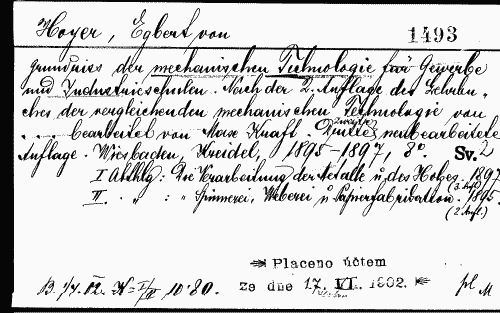 Hoyer, Egbert von
1493
Grundriss der mechanischen Technologie für Gewerbe
und Industrieschulen. Nach der 2. Auflage des Lehrbu-
ches der vergleichenden mechanischen Technologie von
.... bearbeitet von Max Kraft. Dritte neubearbeitete
Auflage. Wiesbaden, Kreidel, 1895-1897, 8°. Sv. 2
I Abthlg: Die Verarbeitung der Metalle u. des Holzes. 1897
(3. Aufl.)
II. " : " Spinnerei, Weberei u. Papierfabrikation. 1895
(2. Aufl.)
Placeno účtem
ze dne 17. VI. 1902.
K = I/II 10·80.